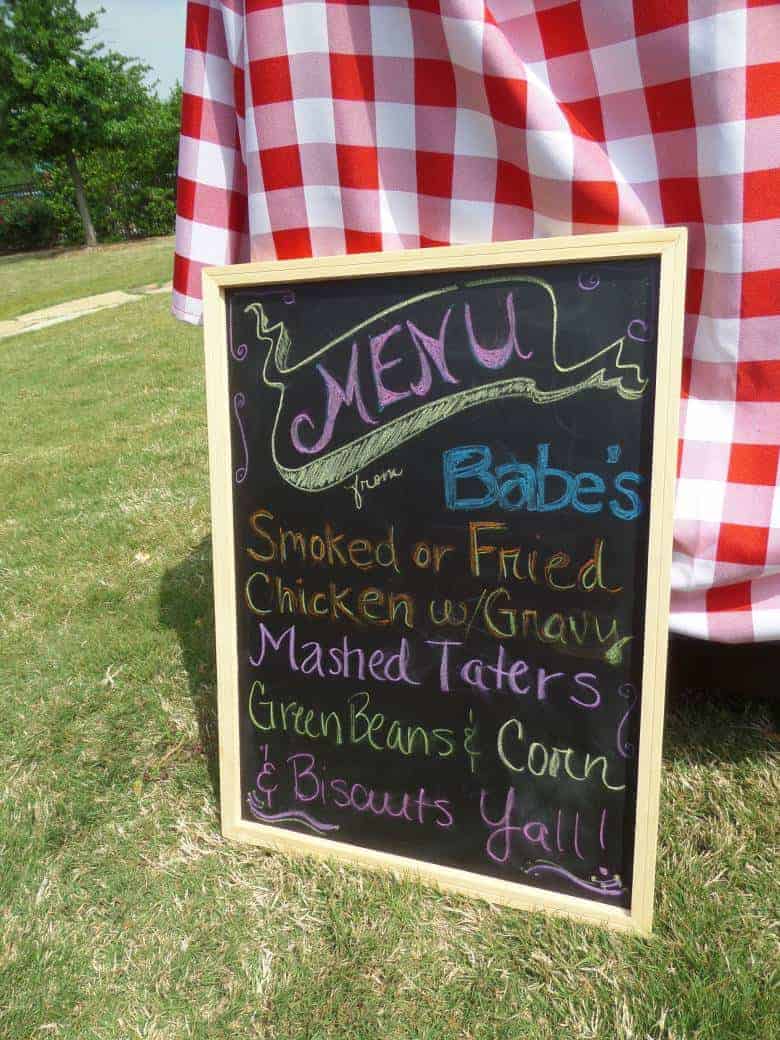 MENU
from Babe's
Smoked or Fried
Chicken w/Gravy
Mashed Taters
Green Beans & Corn
& Biscuits Yall!